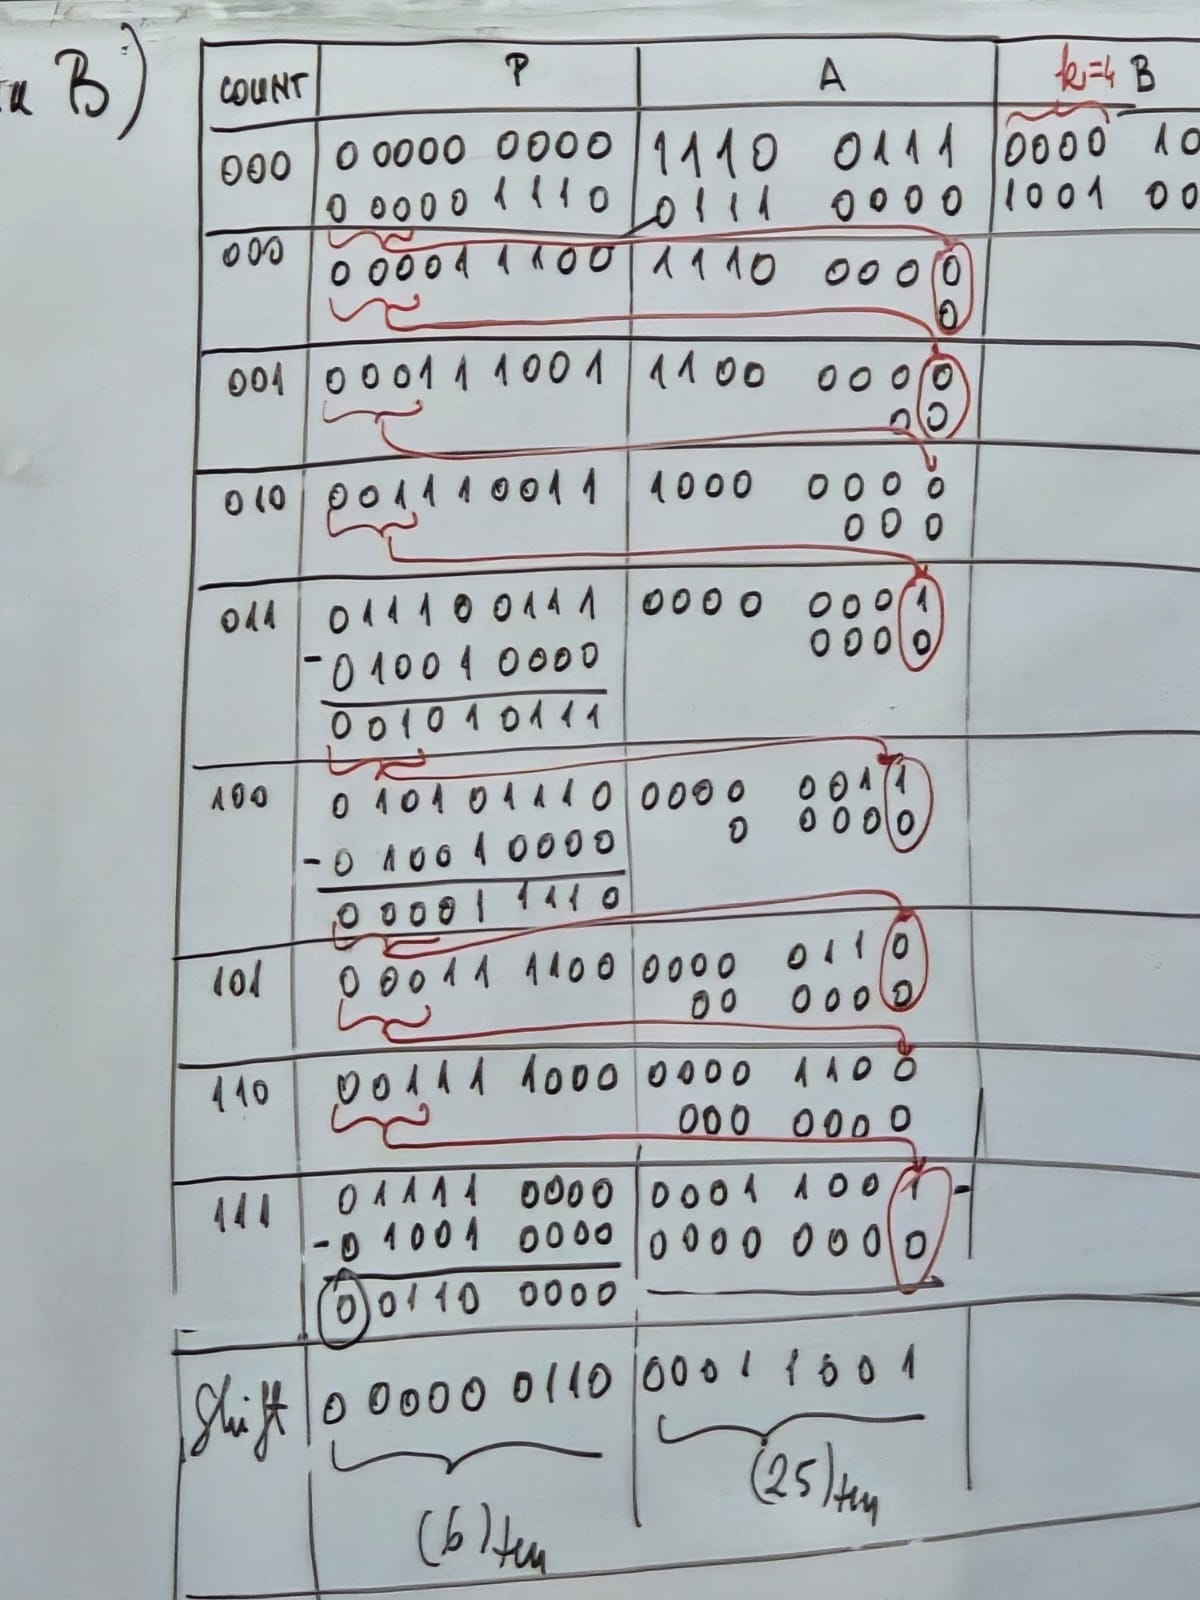 B)
COUNT P A k=4 B
000 0 0000 0000 1110 0111 0000 10
0 0000 1110 0111 0000 1001 00
000 0 0001 1100 1110 0000
0
001 0 0011 1001 1100 0000
00
010 0 0111 0011 1000 0000
000
011 0 1110 0111 0000 0001
- 0 1001 0000 0000
0 0101 0111
100 0 1010 1110 0000 0011
- 0 1001 0000 0 0000
0 0001 1110
101 0 0011 1100 0000 0110
00 0000
110 0 0111 1000 0000 1100
000 0000
111 0 1111 0000 0001 1001 -
- 0 1001 0000 0000 0000
0 0110 0000
Shift 0 0000 0110 0001 1001
(6)ten (25)ten